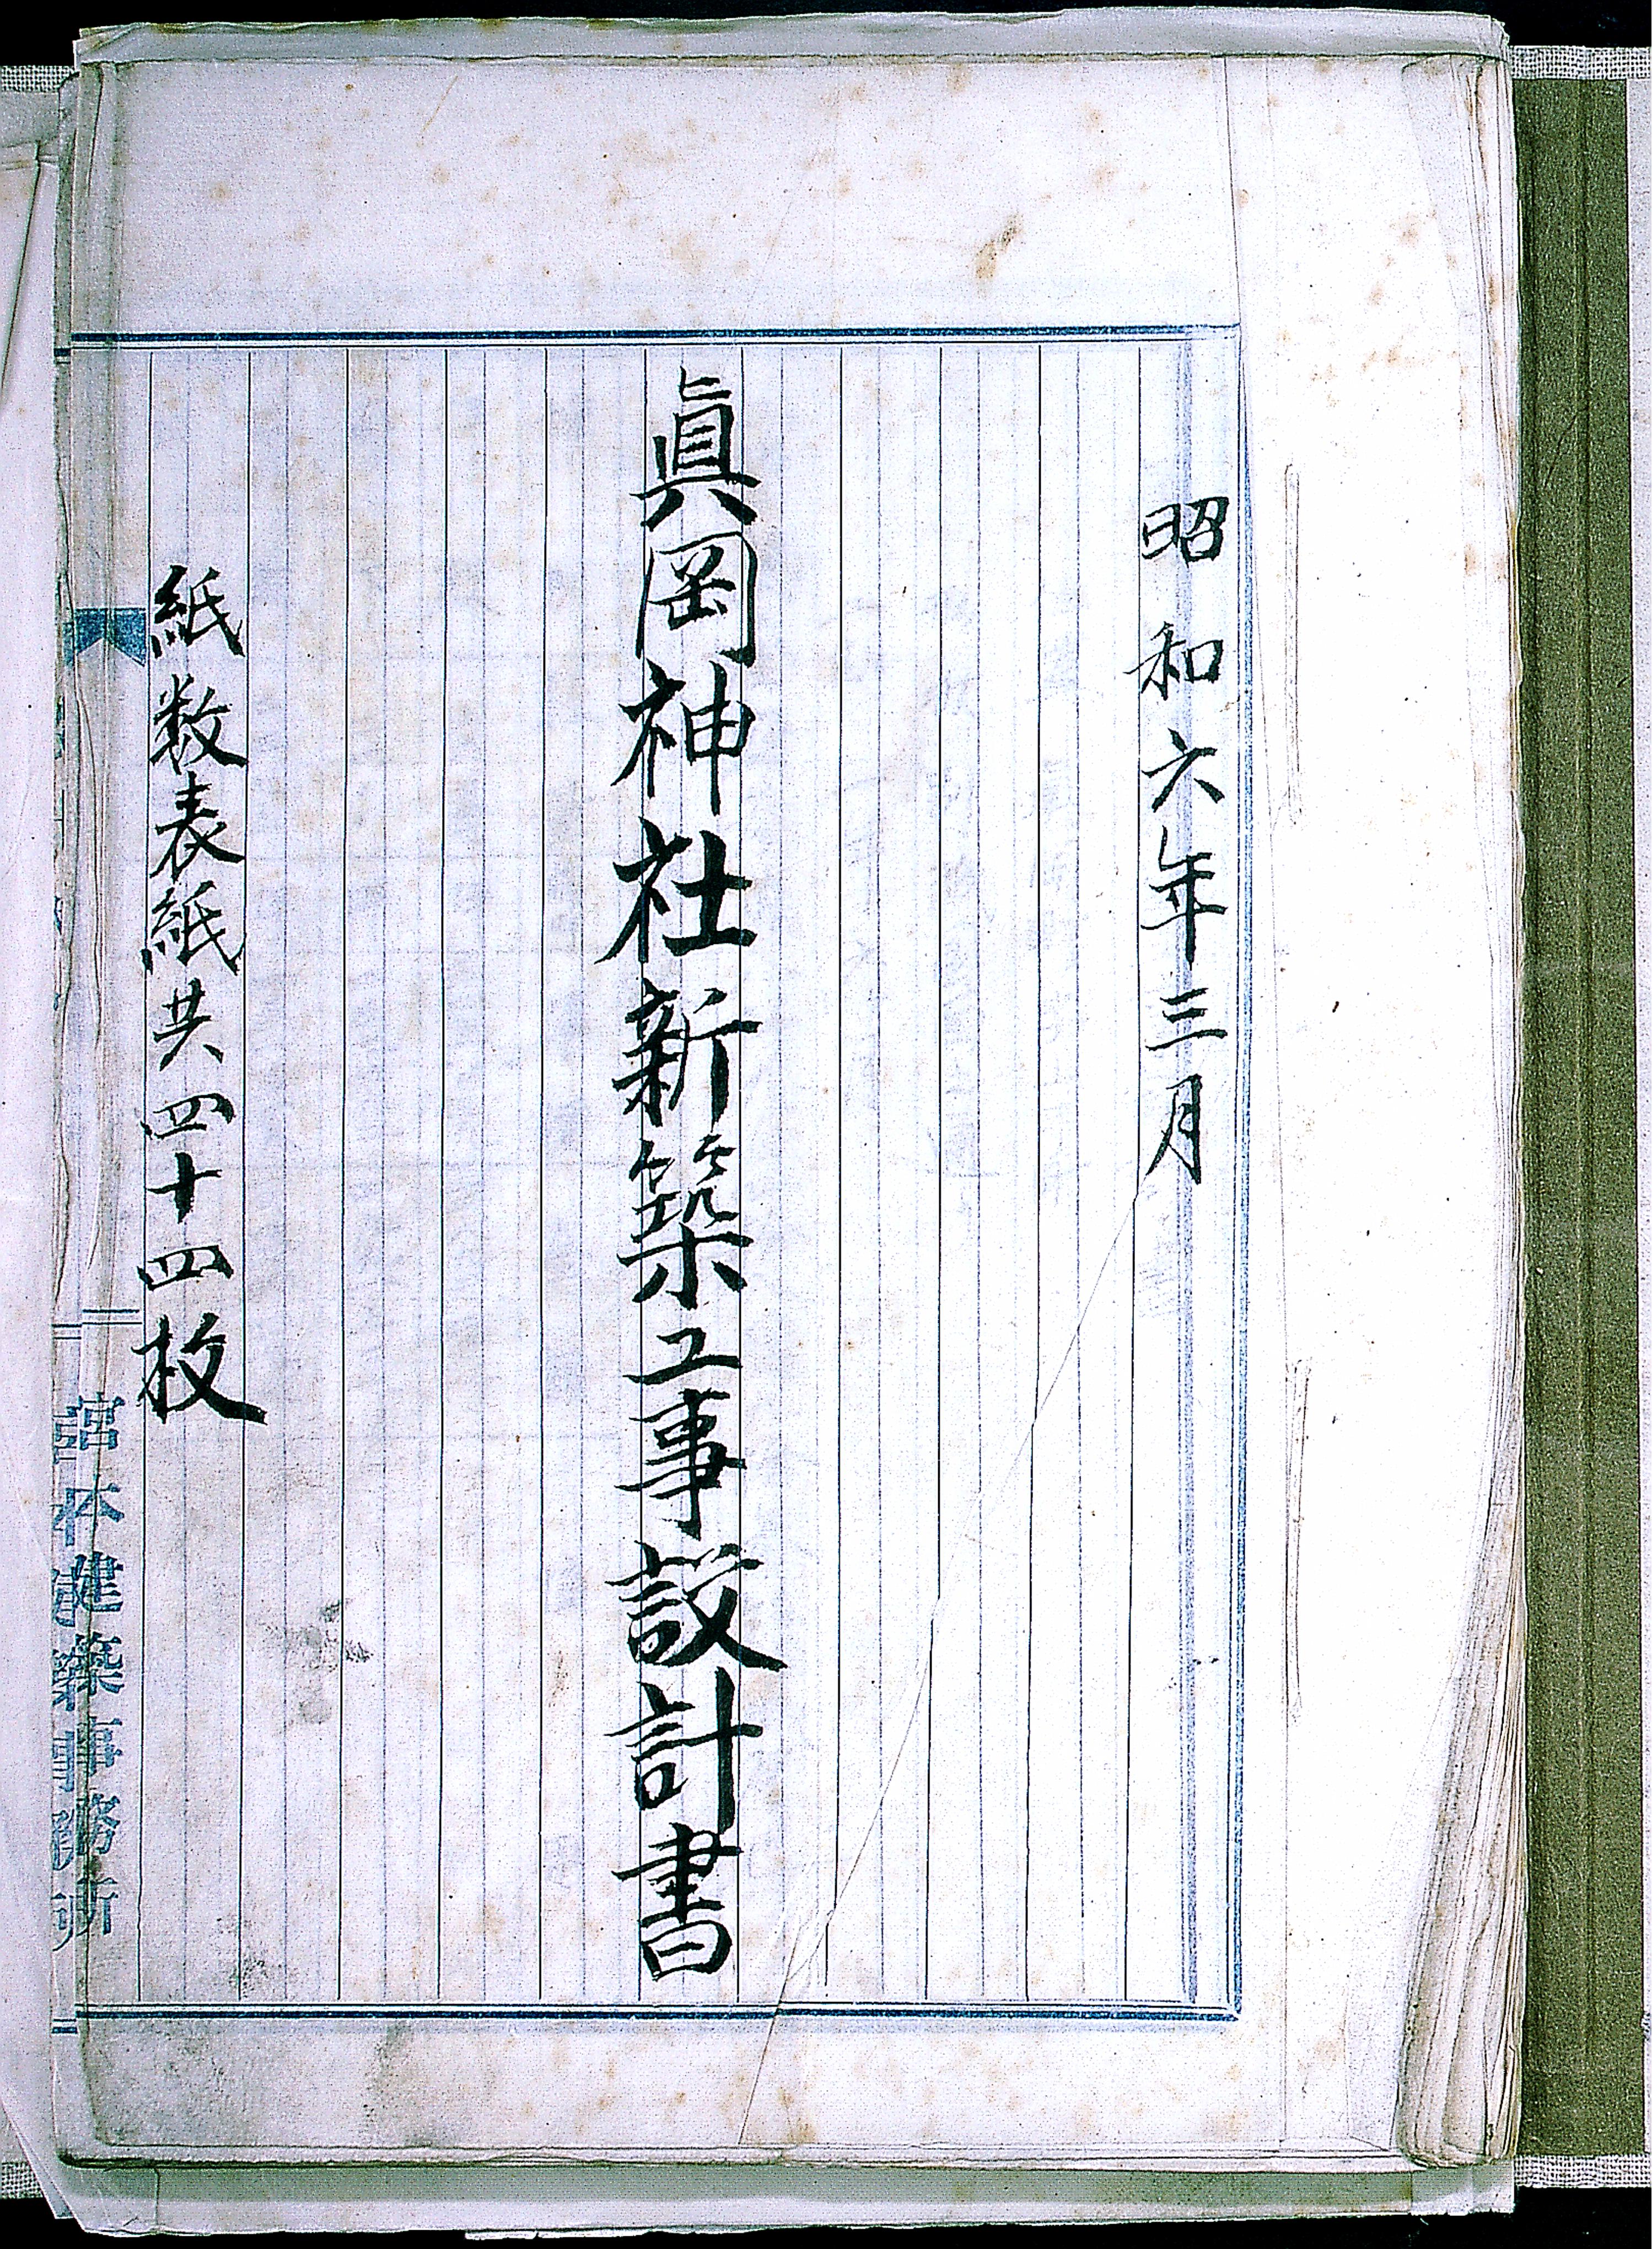 昭和六年三月
眞岡神社新築工事設計書
紙数表紙共四十四枚
宮本建築事務所